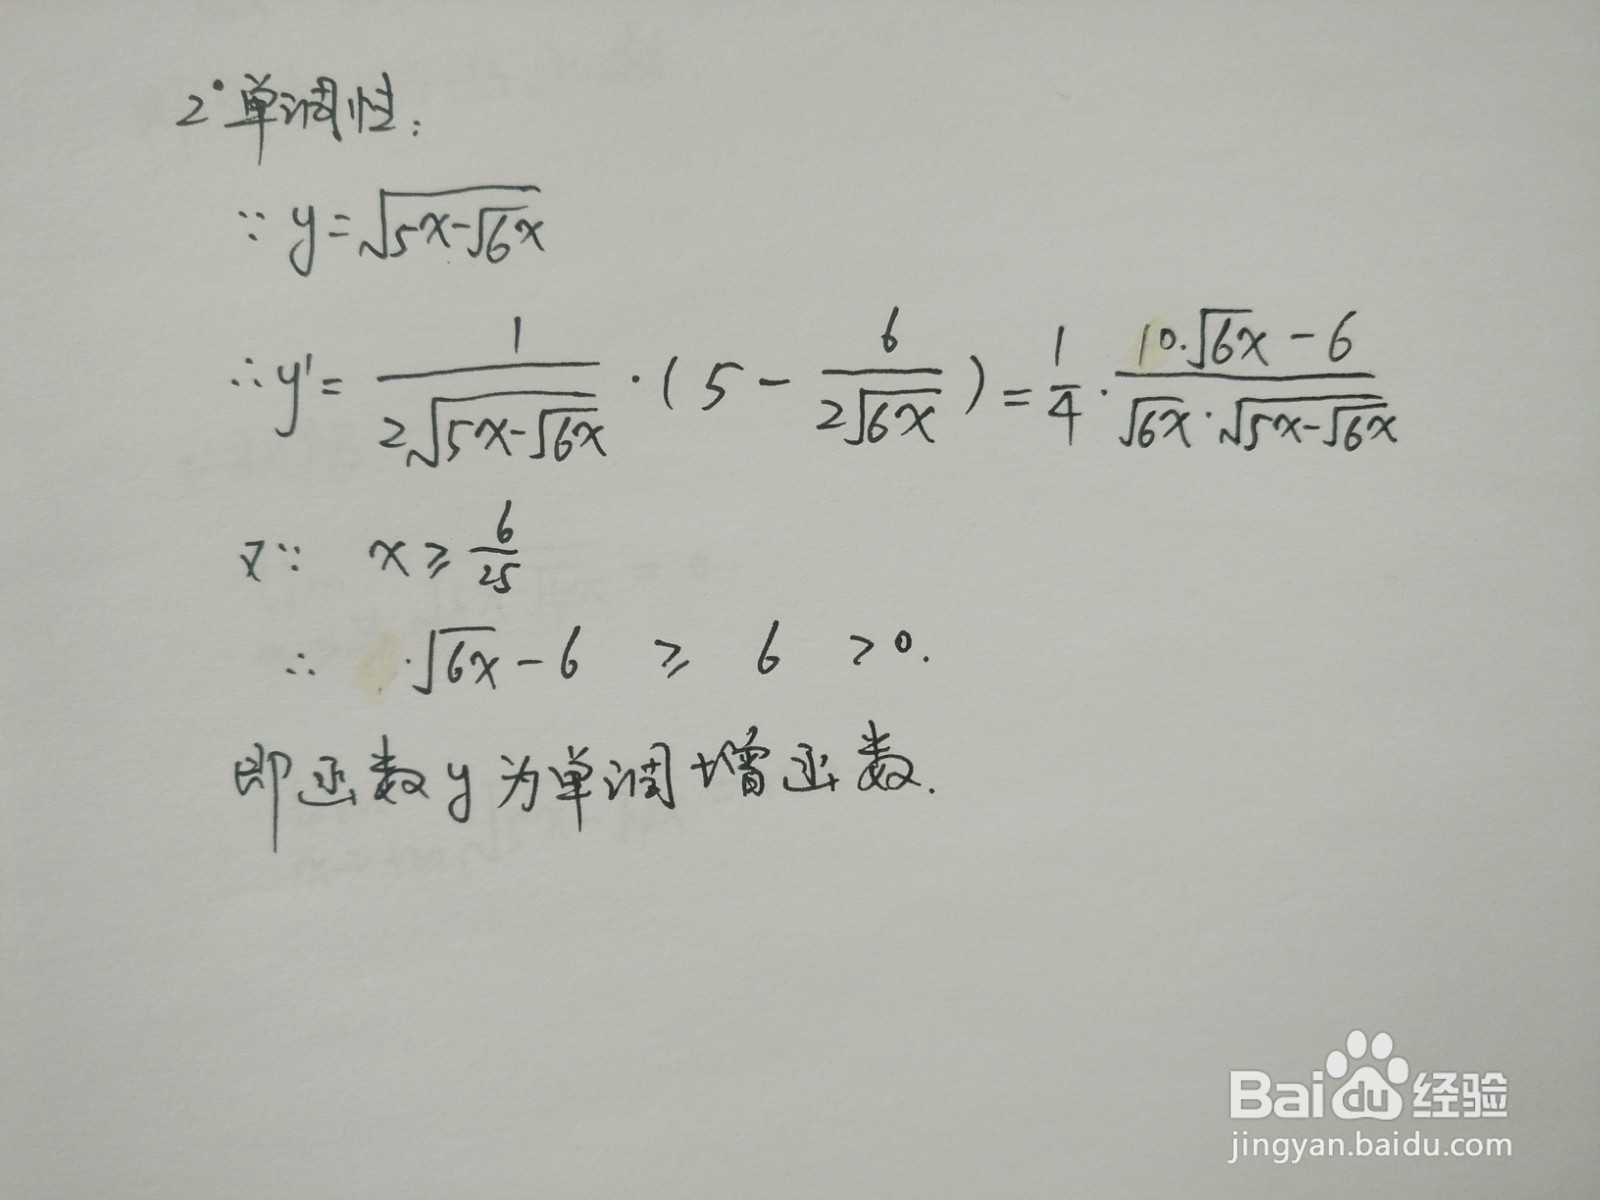 2°单调性:
∵ y=√(5x-√6x)
∴ y'= 1/(2√(5x-√6x)) ·(5 - 6/(2√6x)) = 1/4 · (10·√6x - 6)/(√6x · √(5x-√6x))
又∵ x ≥ 6/25
∴ ·√6x - 6 ≥ 6 > 0.
即函数y为单调增函数.
Baidu 经验
jingyan.baidu.com